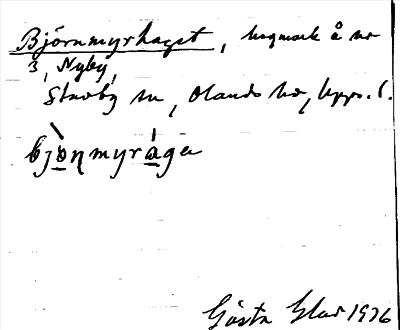 Björnmyrhaget, hagmark å nr
3, Nyby,
Stavby sn, Olands hd, Upps. l.
bjo̠ṇmyra̠ga
Gösta Glad 1936